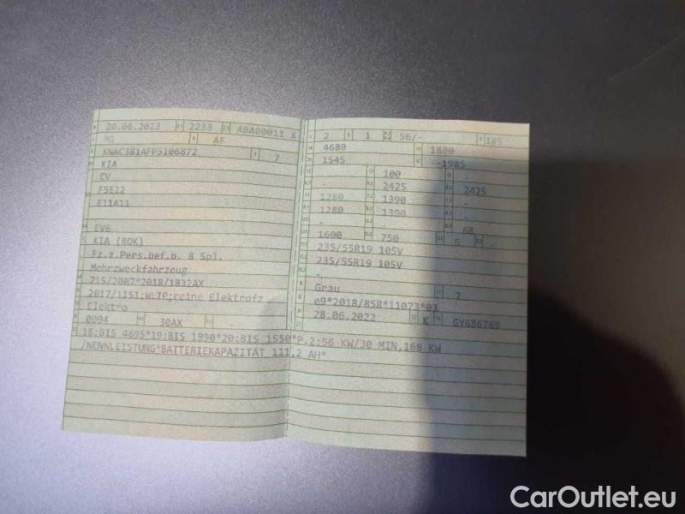 20.06.2023 2233 ABA00011 X
M1 AF
7
KIA
EV
F5E22
E11A11
EV6
KIA (ROK)
Fz.z.Pers.bef.b. 8 Spl.
Mehrzweckfahrzeug
715/2007*2018/1832AX
2017/1151;WLTP;reine Elektrofz
Elektro
0004 30AX
2 1 56/- 185
4680 1880
1545
- 100 -
- 2425 - 2425
1280 1390 -
1280 1390 -
- - 68
1600 750 5 -
235/55R19 105V
235/55R19 105V
-
Grau 7
e9*2018/858*11073*03
28.06.2022 K GY686765
18:BIS 4695*19:BIS 1890*20:BIS 1550*P.2:56 KW/30 MIN,168 KW
/NENNLEISTUNG*BATTERIEKAPAZITÄT 111,2 AH*
CarOutlet.eu